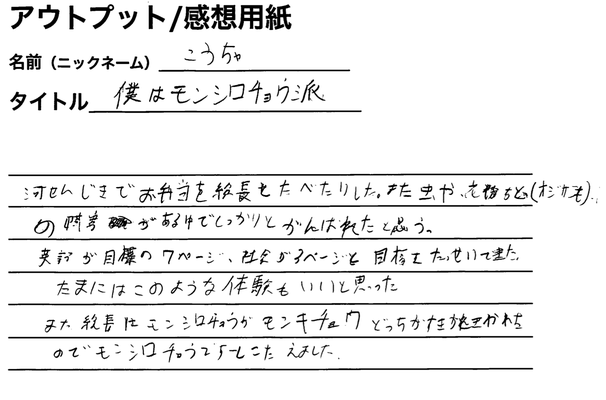 アウトプット/感想用紙
名前（ニックネーム） こうちゃ
タイトル 僕はモンシロチョウ派
河せんじきでお弁当を総長とたべたりした。また虫や、(オジサモ)
の障害がある中でしっかりとがんばれたと思う。
英語が目標の7ページ、社会が3ページと目標をたっせいできた
たまにはこのような体験もいいと思った
また総長はモンシロチョウかモンキチョウどっちかを
のでモンシロチョウですとこたえました。